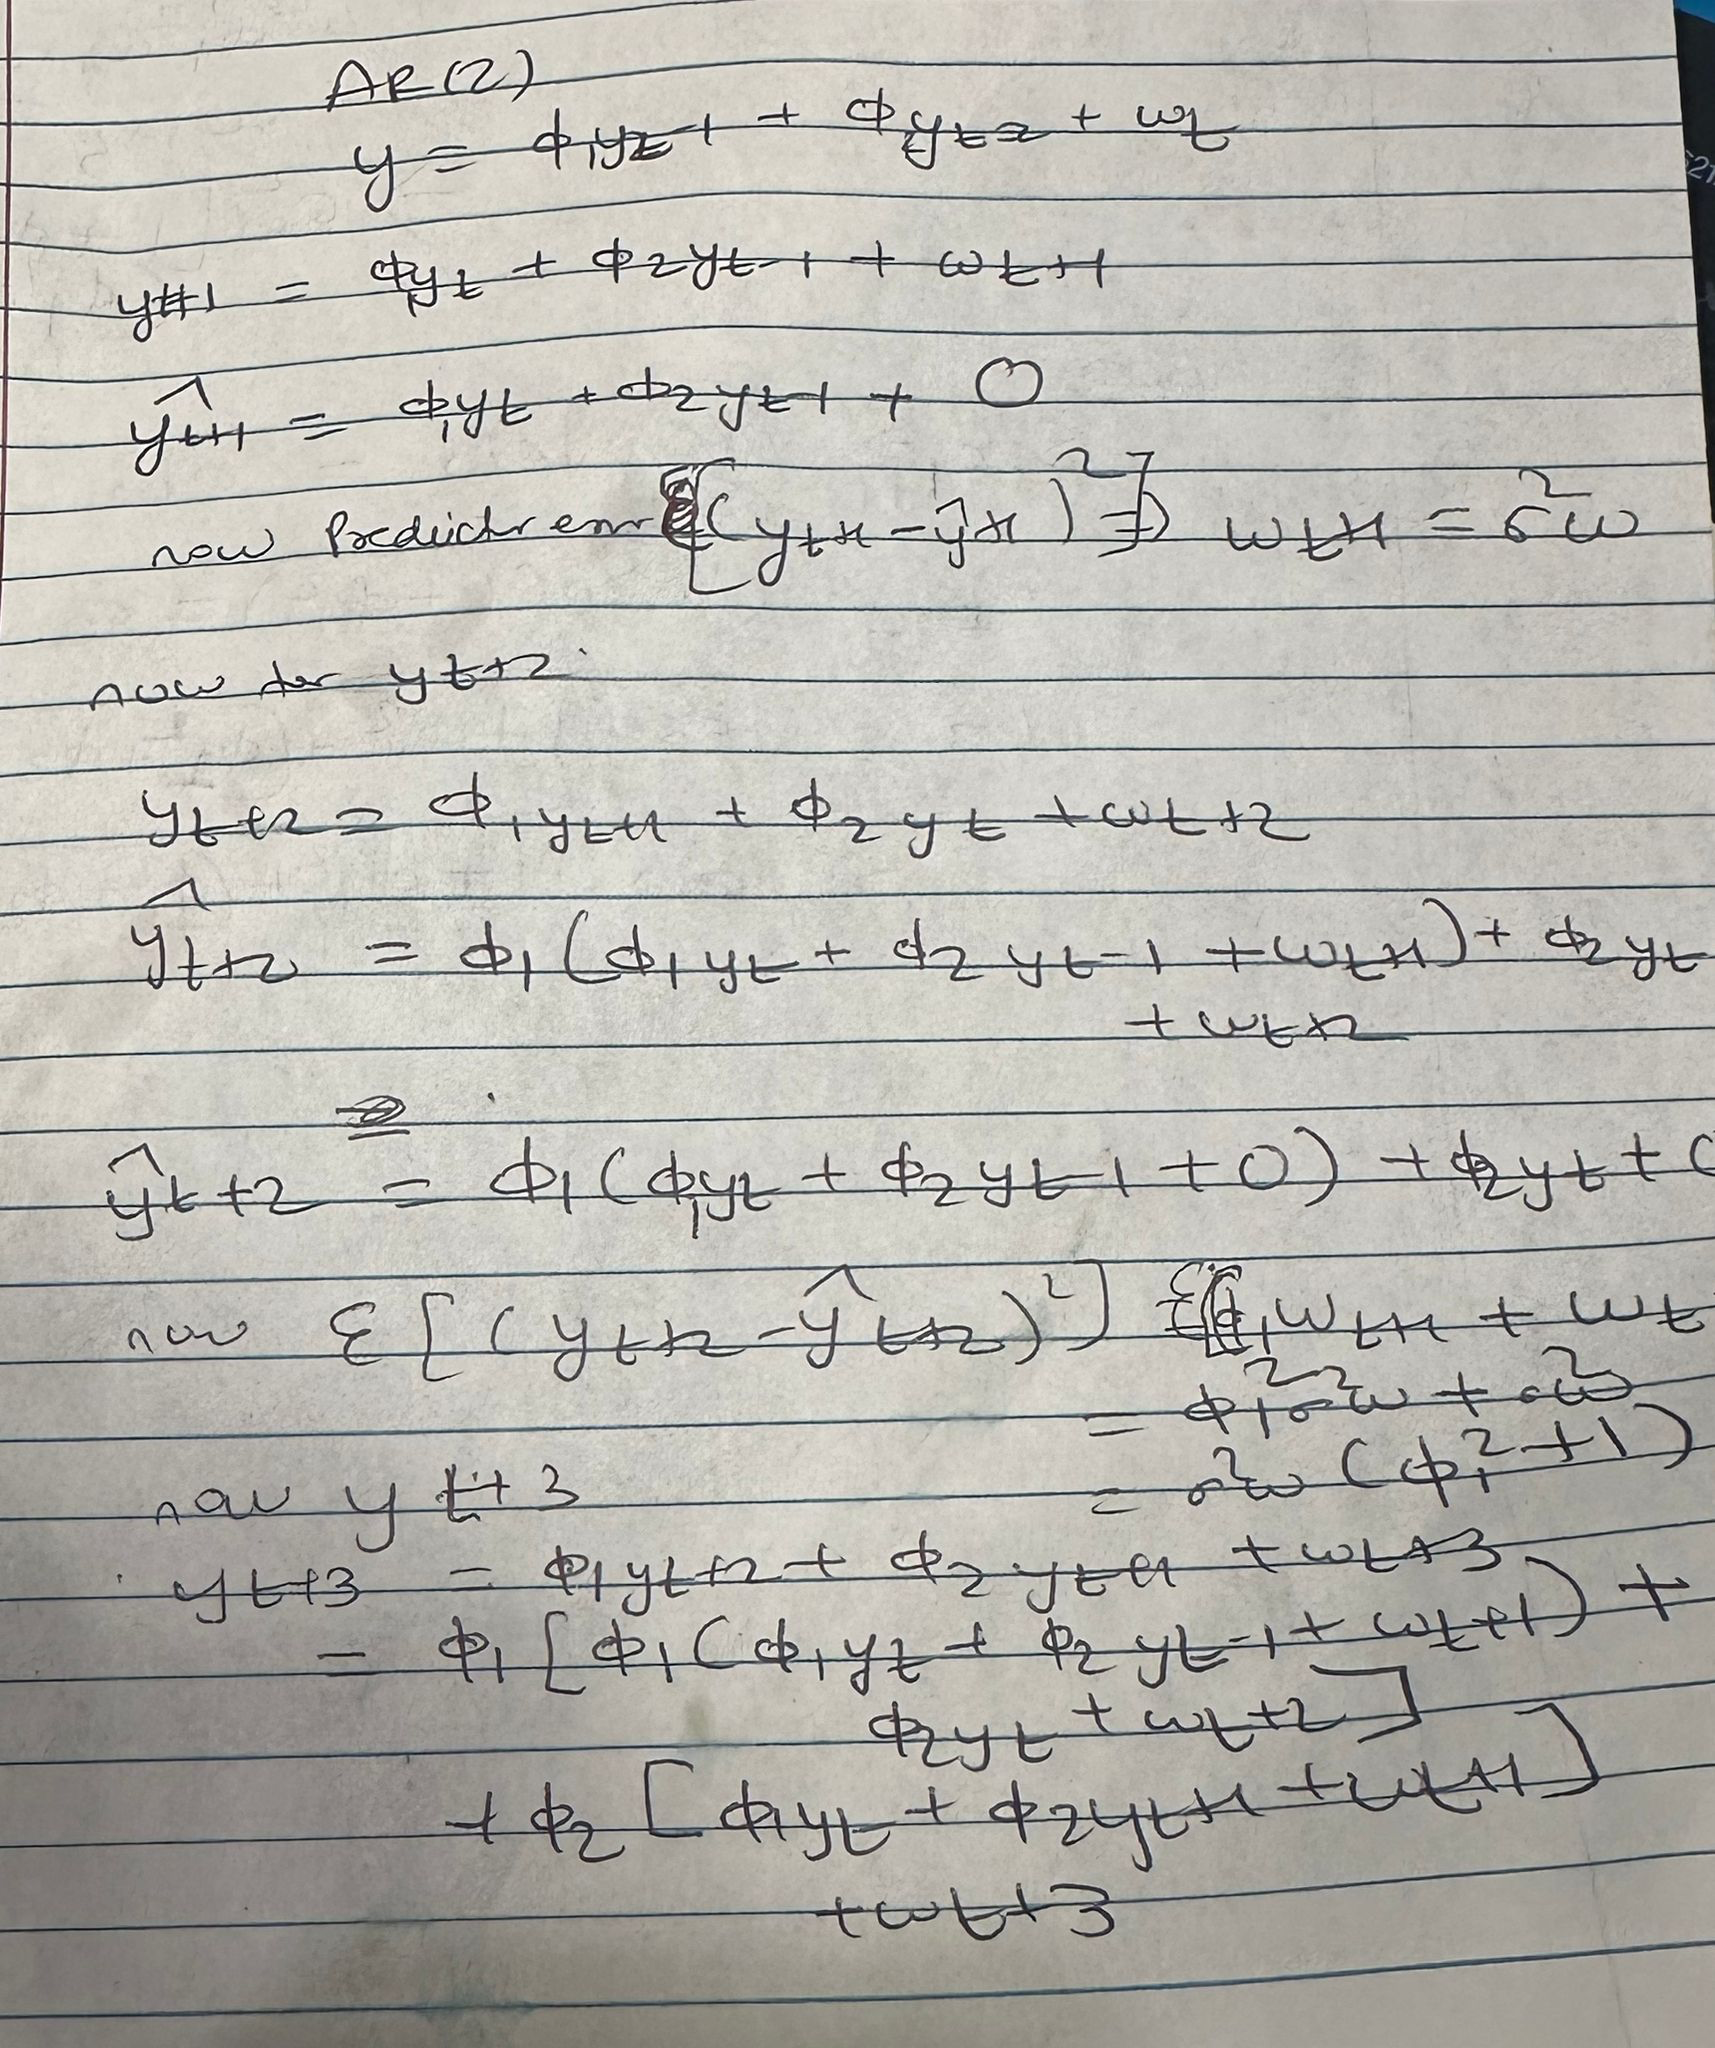 AR(2)
y = ϕ₁yt-1 + ϕ₂yt-2 + wt
yt+1 = ϕ₁yt + ϕ2yt-1 + wt+1
ŷt+1 = ϕ₁yt + ϕ2yt-1 + 0
now Predictr error [(yt+1 - ŷt+1)²] => wt+1 = σ²w
now for yt+2
yt+2 = ϕ₁yt+1 + ϕ2yt + wt+2
ŷt+2 = ϕ₁(ϕ₁yt + ϕ2yt-1 + wt+1) + ϕ2yt
+ wt+2
ŷt+2 = ϕ₁(ϕ₁yt + ϕ2yt-1 + 0) + ϕ2yt + 0
now ε[(yt+2 - ŷt+2)²] ε[(ϕ₁wt+1 + wt
= ϕ₁²σ²w + σ²w
= σ²w(ϕ₁² + 1)
now yt+3
yt+3 = ϕ₁yt+2 + ϕ2yt+1 + wt+3
= ϕ₁[ϕ₁(ϕ₁yt + ϕ2yt-1 + wt+1) +
ϕ2yt + wt+2]
+ ϕ2[ϕ₁yt + ϕ2yt+1 + wt+1]
+ wt+3